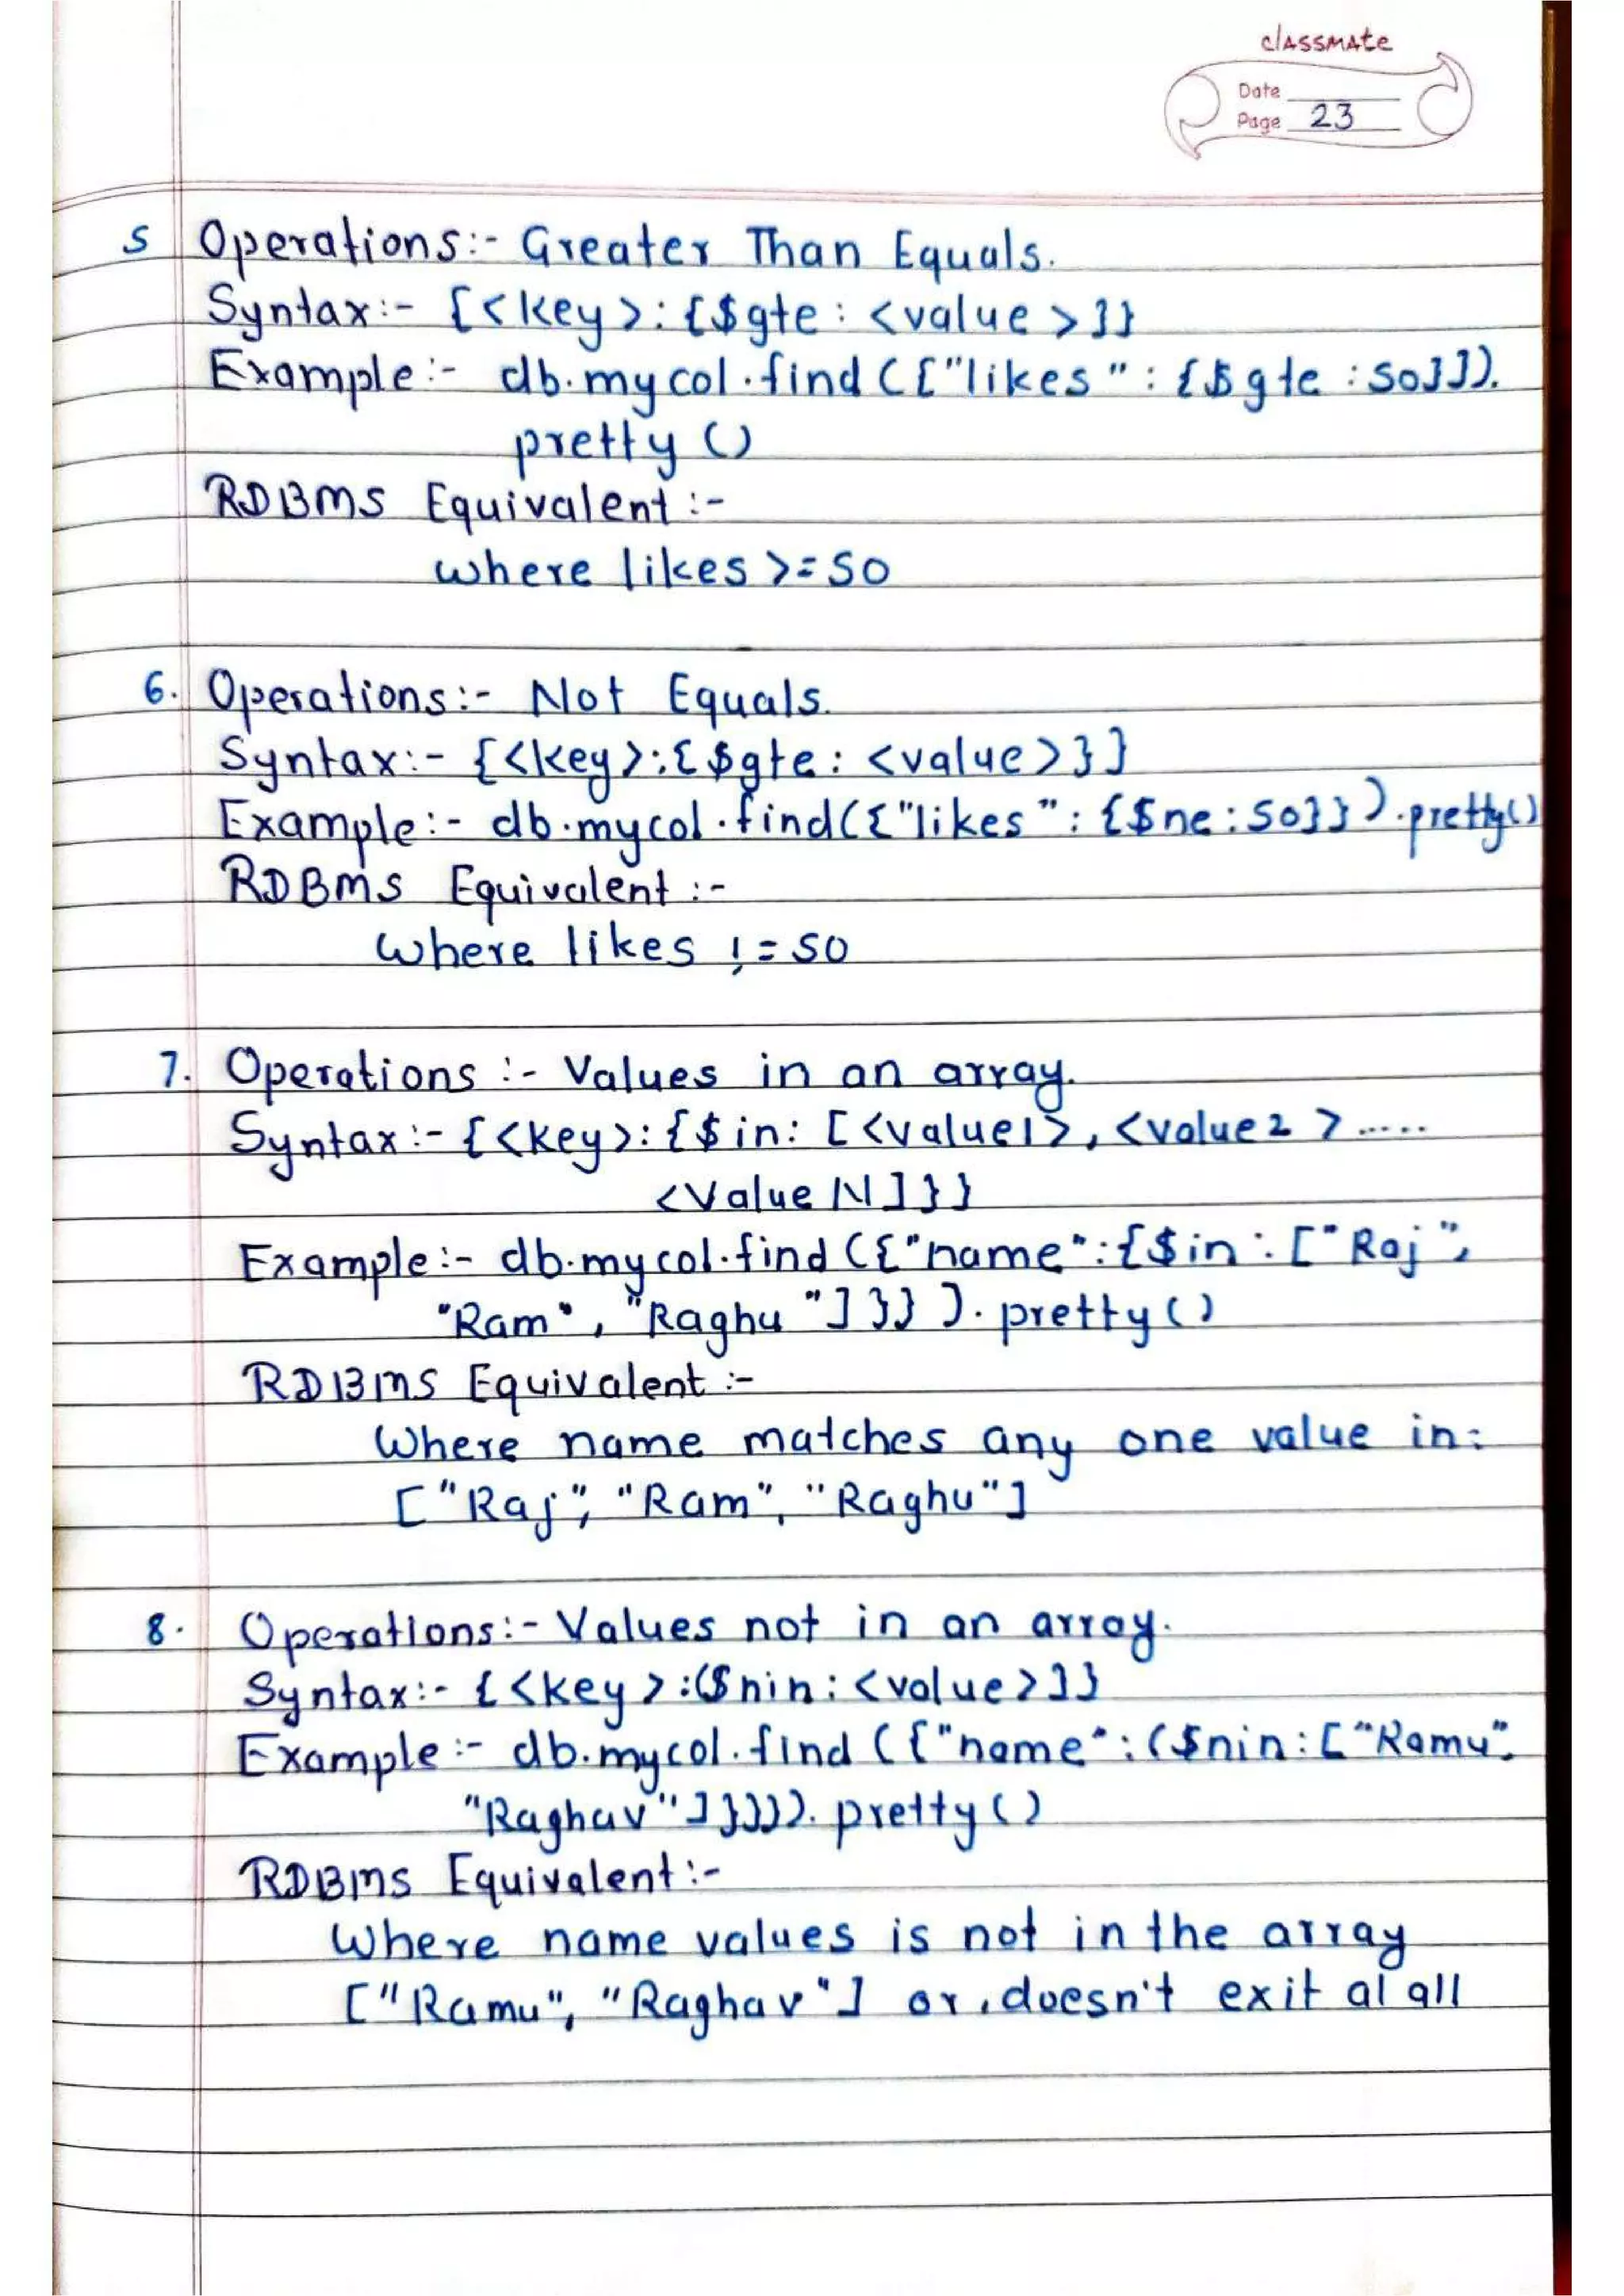 classmate
Date
Page 23
5 Operations:- Greater Than Equals.
Syntax:- {<key>:{$gte: <value>}}
Example:- db.mycol.find({"likes": {$gte:50}}).
pretty()
RDBMS Equivalent:-
where likes >= 50
6. Operations:- Not Equals.
Syntax:- {<key>:{$gte: <value>}}
Example:- db.mycol.find({"likes": {$ne:50}}).pretty()
RDBMS Equivalent:-
Where likes != 50
7. Operations:- Values in an array.
Syntax:- {<key>:{$in: [<value1>, <value2>.....
<Value N]}}
Example:- db.mycol.find({"name":{$in: ["Raj",
"Ram", "Raghu"]}}).pretty()
RDBMS Equivalent:-
Where name matches any one value in:
["Raj", "Ram", "Raghu"]
8. Operations:- Values not in an array.
Syntax:- {<key>:($nin:<value>}}
Example:- db.mycol.find({"name":($nin:["Ramu",
"Raghav"]}})).pretty()
RDBMS Equivalent:-
Where name values is not in the array
["Ramu", "Raghav"] or, doesn't exit al all